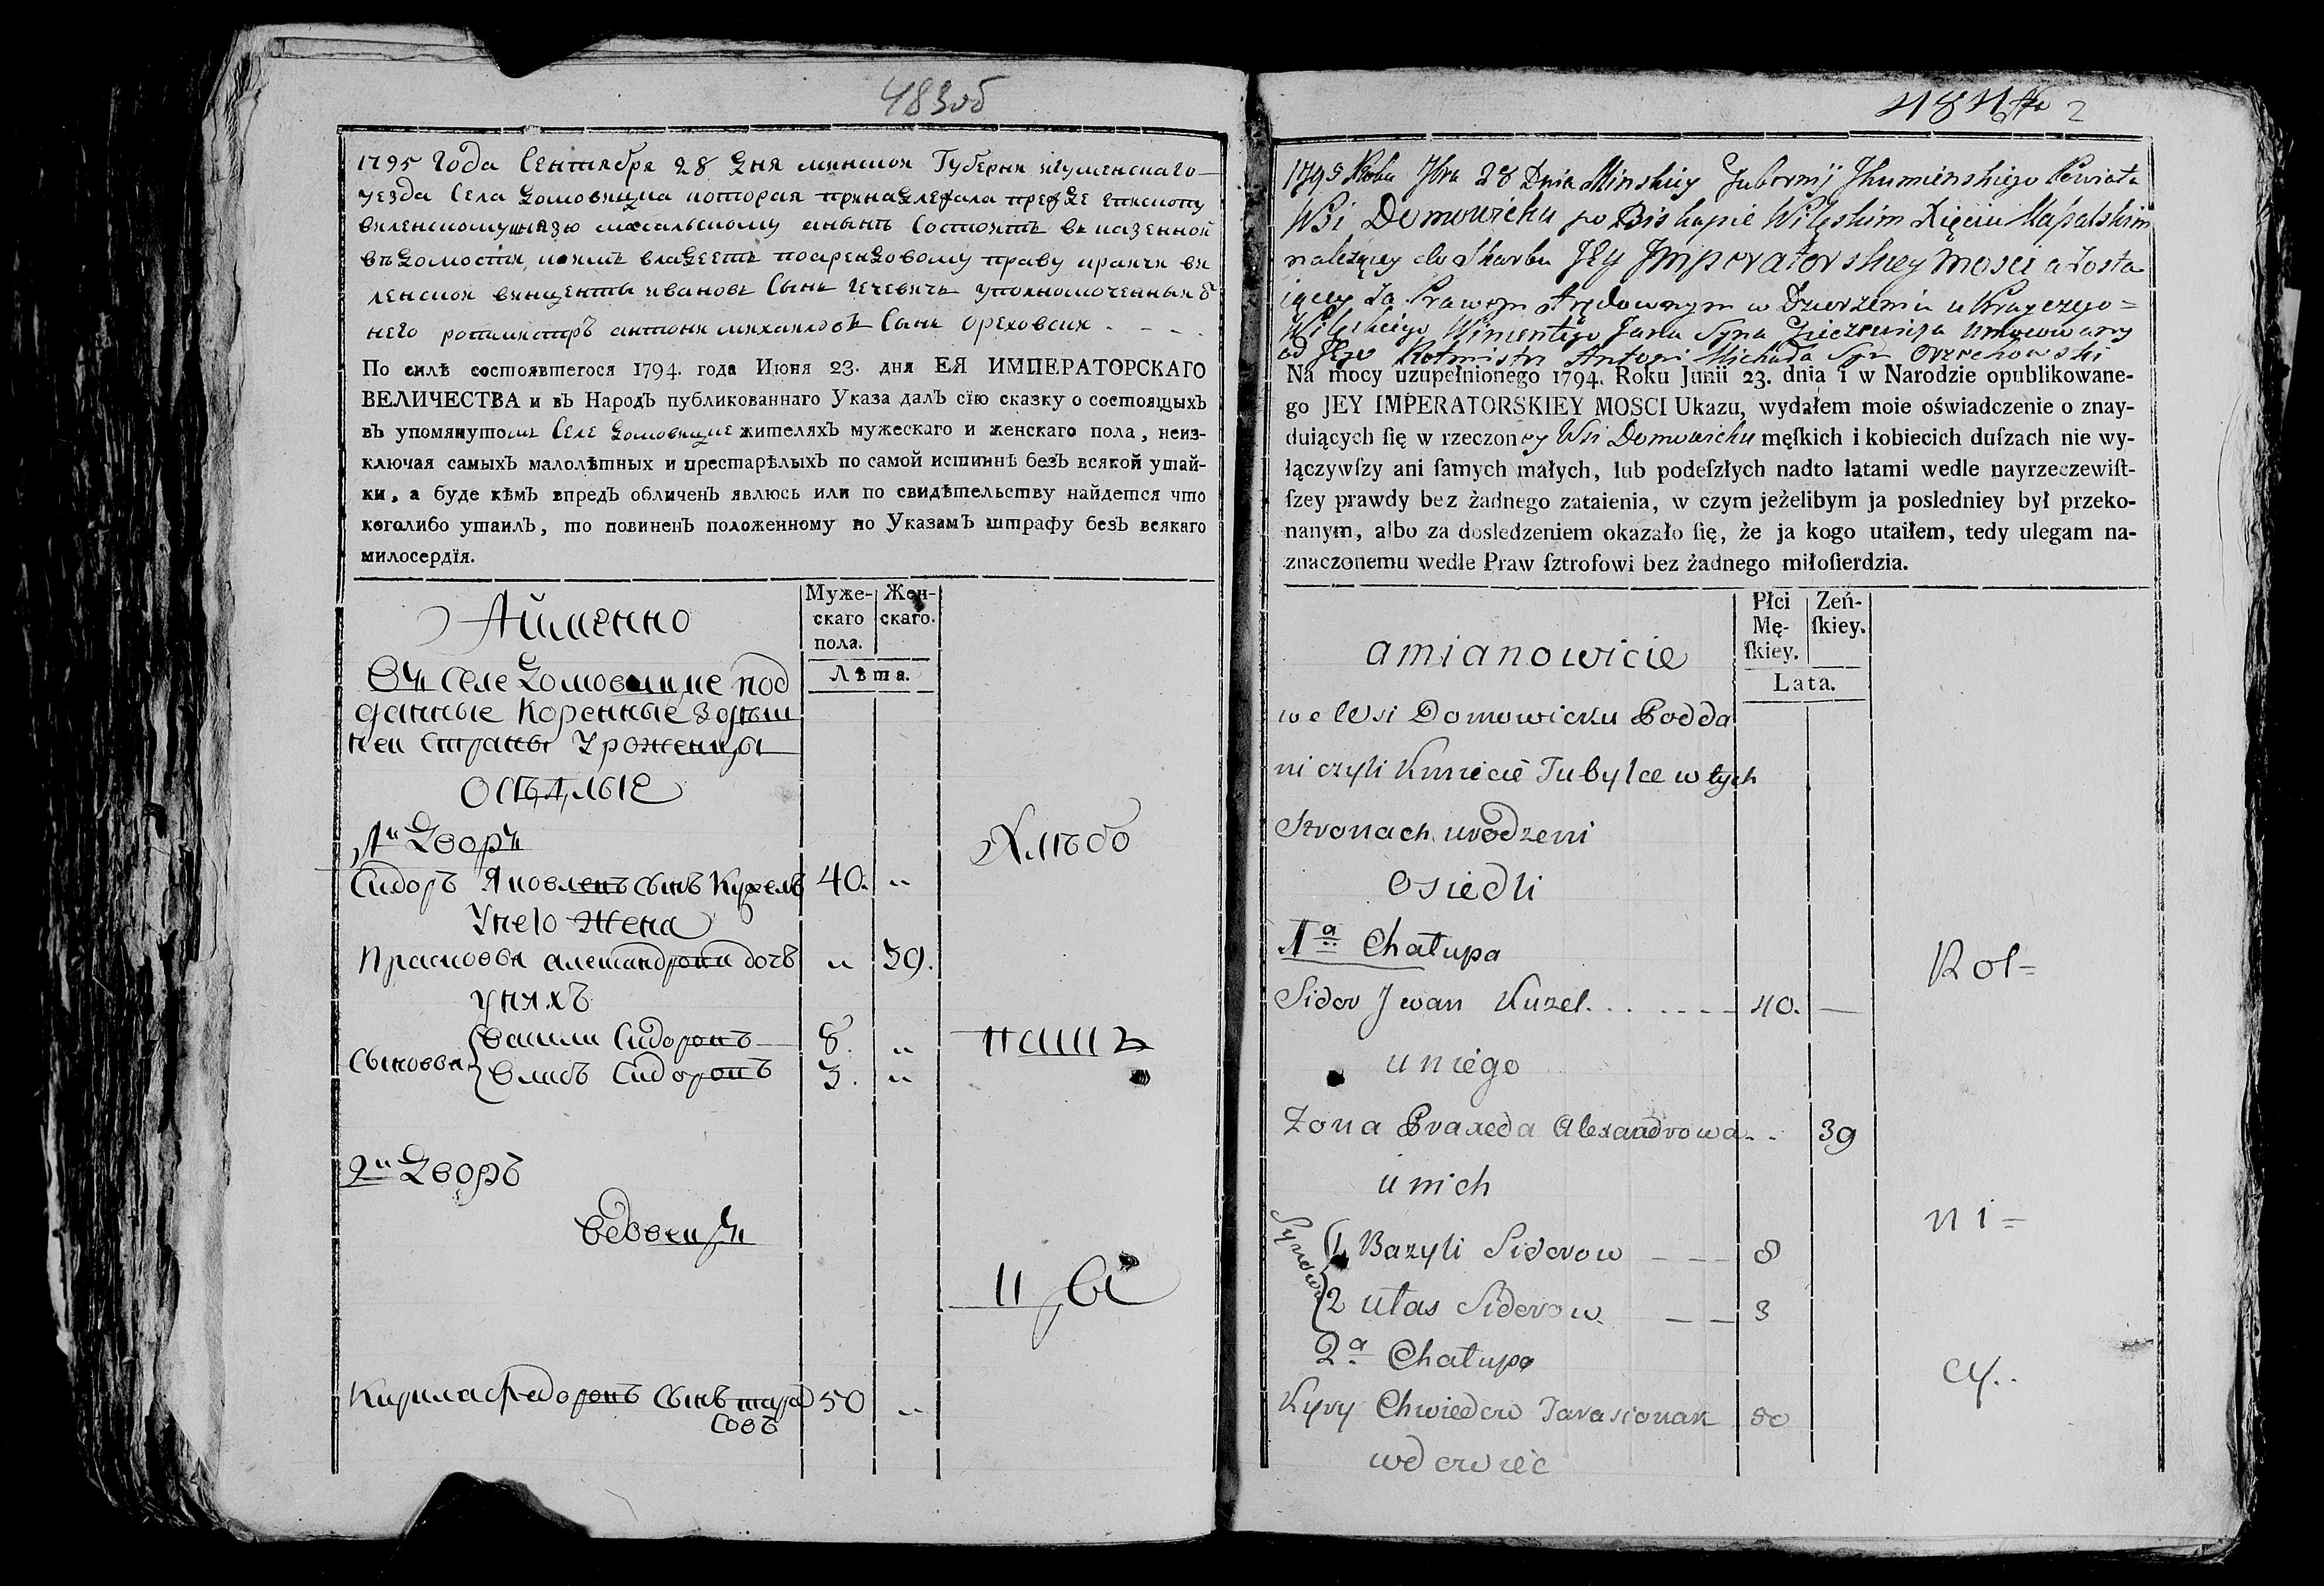 483об
1795 года Сентября 28 дня минской Губерни игуменскаго
уезда Села домовицка которая принадлежала прежде епископу
виленскому князю масальскому аныне Состоитъ въ казенной
въдомости, коимъ владеетъ поарендовому праву крайчи ви
ленской винценты ивановъ Сынъ гечевичъ уполномоченный о
него ротмистръ антони михаиловъ Сынъ ореховски
По силѣ состоявтегося 1794. года Июня 23. дня ЕЯ ИМПЕРАТОРСКАГО
ВЕЛИЧЕСТВА и въ Народъ публикованнаго Указа далъ сїю сказку о состоящыхъ
въ упомянутомъ Селе жителяхъ мужескаго и женскаго пола, неиз-
ключая самыхъ малолѣтных и престарѣлыхъ по самой истиннѣ безъ всякой утай-
ки, а буде кѣмъ впредъ обличенъ явлюсь или по свидѣтельству найдется что
коголибо утаилъ, то повиненъ положенному по Указамъ штрафу безъ всякаго
милосердїя.
Аймянно
Муже-
скаго
пола.
Жен-
скаго.
Лѣта.
Въ селе под
данные коренные здѣш
ней страны уроженцы
осѣдлые
1й Дворъ
Сидоръ Яковлевъ сынъ Кужель 40. „
Унего жена
Прасковья александрова дочь „ 39.
уняхъ
Сыновья
Васили Сидоровъ 8. „
Власъ Сидоровъ 3. „
2й Дворъ
вдовецъ
Кирила федоровъ Сынъ тара 50 „
совъ
Хлѣбо
паш
цы
484 2
1795 Roku 7bra 28 Dnia Minskiey Gubernij Jhumienskiego Powiatu
Wsi Domowicku po Biskupie Wileskim Xięciu Masalskim
należącey do Skarbu JEy Jmperatorskiey Mosci a Zosta
iącey Za Prawem Arędownym w Dzierżeniu u Krayczego
Wileskiego Wincentego Jana Syna Gieczewicza umocowany
od Jego Rotmistrz Antoni Michała Syn Orzechowski
Na mocy uzupełnionego 1794. Roku Junii 23. dnia i w Narodzie opublikowane-
go JEY IMPERATORSKIEY MOSCI Ukazu, wydałem moie oświadczenie o znay-
duiących ſię w rzeczoney Wsi Domowicku męſkich i kobiecich duſzach nie wy-
łączywſzy ani ſamych małych, lub podeſzłych nadto latami wedle nayrzeczewiſt-
ſzey prawdy bez żadnego zataienia, w czym jeżelibym ja posledniey był przeko-
nanym, albo za dosledzeniem okazało ſię, że ja kogo utaiłem, tedy ulegam na-
znaczonemu wedle Praw ſztrofowi bez żadnego miłoſierdzia.
amianowicie
Płci
Mę-
ſkiey.
Zeń-
ſkiey.
Lata.
we Wsi Domowicku Podda
ni czyli Kmiecie Tubylce w tych
Stronach urodzeni
osiedli
1a Chałupa
Sidor Jwan Kuzel. 40. —
u niego
Zona Praxeda Alexandrowa 39
u nich
Synowie
1 Bazyli Siderow 8
2 ułas Siderow 3
2a Chałupa
Kyry Chwiedow Tarasionak 50
wdowiec
Rol=
ni=
cy..